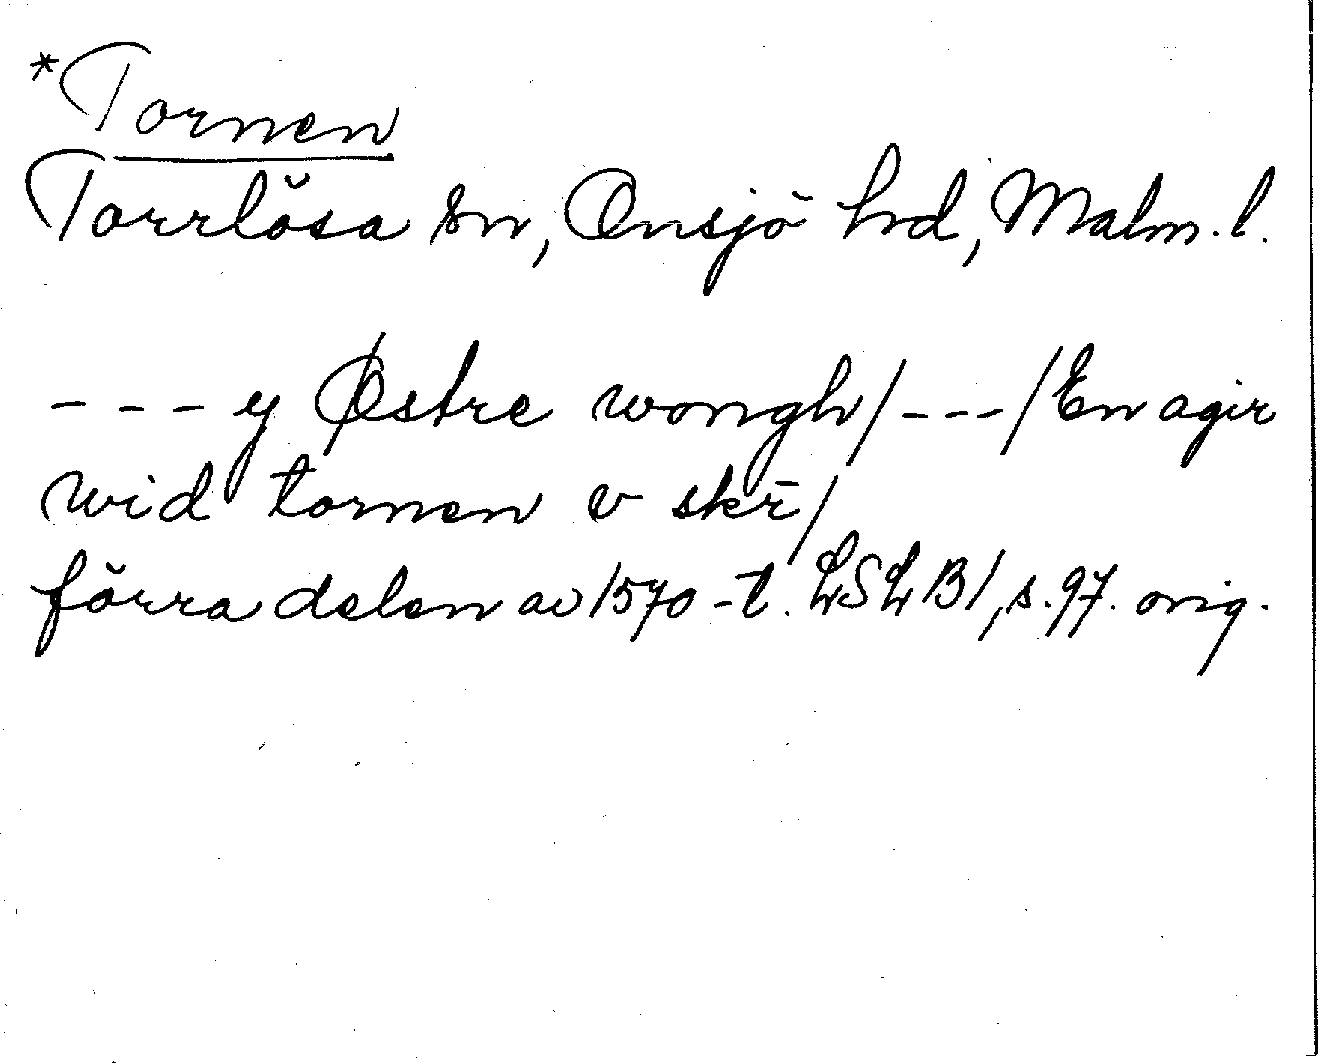 *Tornen
Torrlösa sn, Onsjö hd, Malm. l.
- - - y Østre wongh/ - - - /En agir
wid tornen v skr̄/
förra delen av 1570-t. LSLB1, s. 97. orig.